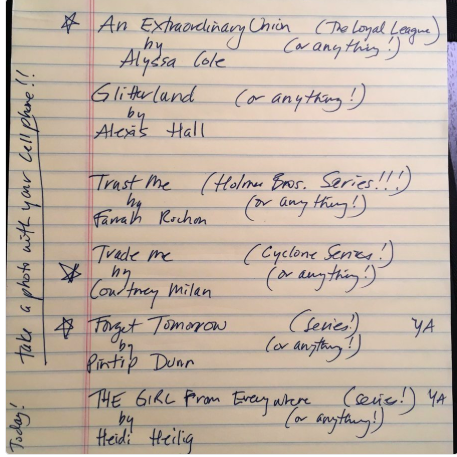 An Extraordinary Union (The Loyal League)
by (or anything!)
Alyssa Cole
Glitterland (or anything!)
by
Alexis Hall
Trust Me (Holmes Bros. Series!!!)
by (or anything!)
Farrah Rochon
Trade me (Cyclone Series!)
by (or anything!)
Courtney Milan
Forget Tomorrow (series!) YA
by (or anything!)
Pintip Dunn
THE GIRL From Everywhere (series!) YA
by (or anything!)
Heidi Heilig
Take a photo with your cell phone!!
Today!